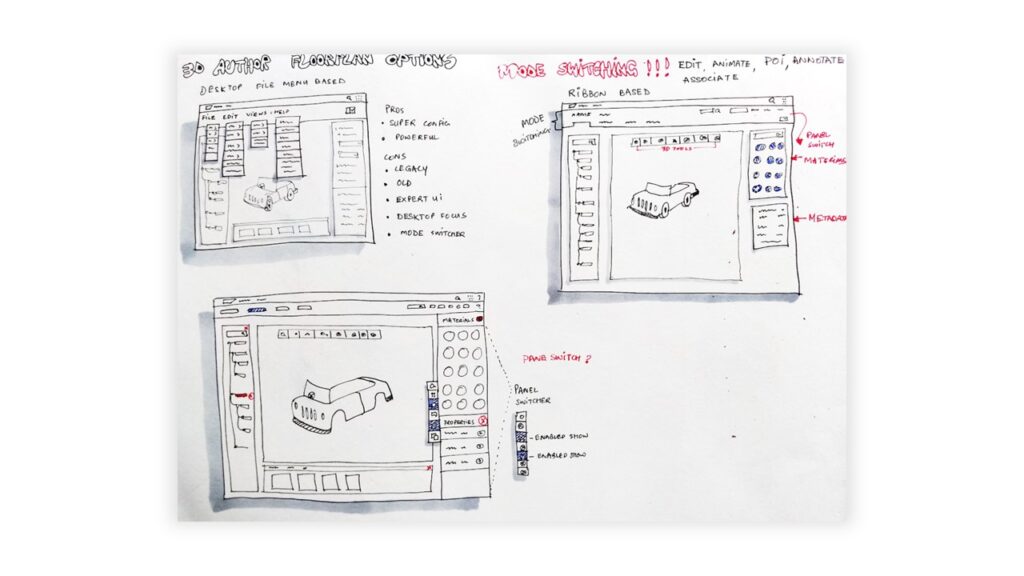 3D AUTHOR FLOORPLAN OPTIONS
DESKTOP FILE MENU BASED
FILE EDIT VIEWS HELP
PROS
• SUPER CONFIG
• POWERFUL
CONS
• LEGACY
• OLD
• EXPERT UI
• DESKTOP FOCUS
• MODE SWITCHER
MODE SWITCHING !!! EDIT, ANIMATE, POI, ANNOTATE
ASSOCIATE
RIBBON BASED
MODE
SWITCHING
3D TOOLS
PANEL
SWITCH
MATERIALS
METADATA
MATERIALS
PROPERTIES
PANE SWITCH ?
PANEL
SWITCHER
- ENABLED SHOW
- ENABLED SHOW